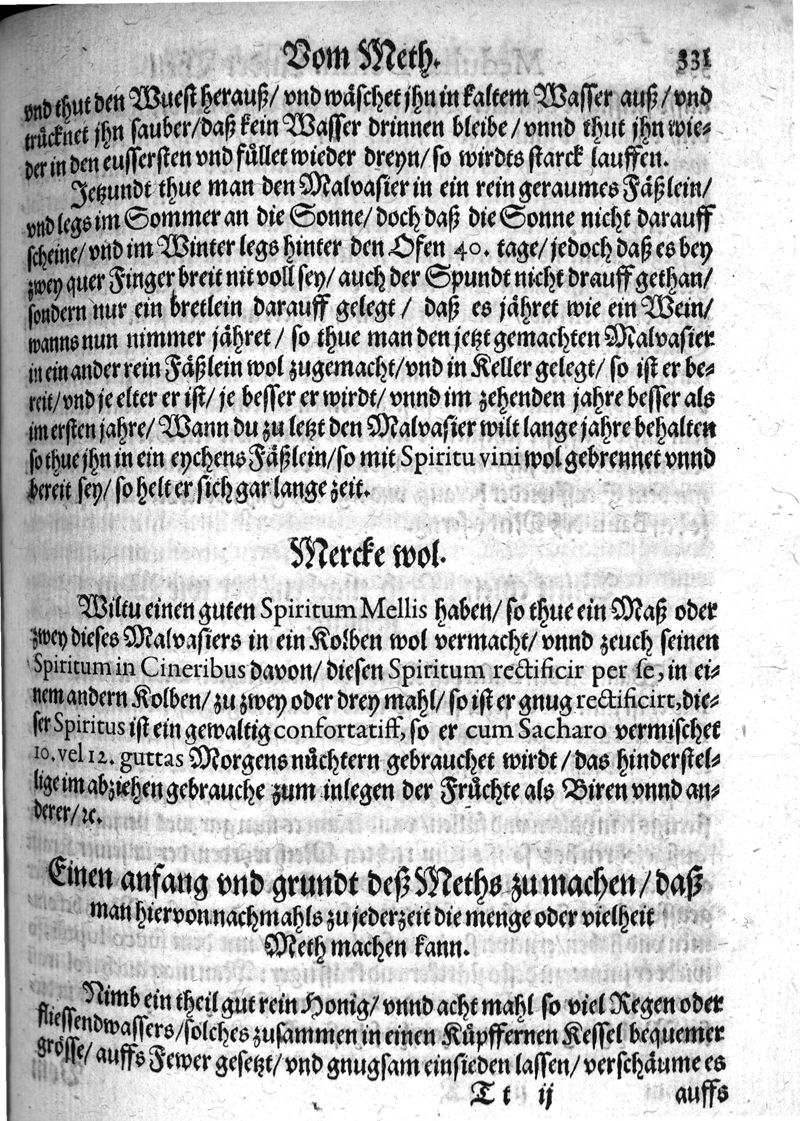 Vom Meth. 331
vnd thut den Wuest herauß/ vnd wäschet jhn in kaltem Wasser auß/ vnd
trücknet jhn sauber/daß kein Wasser drinnen bleibe/vnnd thut jhn wie-
der in den eussersten vnd füllet wieder dreyn/ so wirdts starck lauffen.
Jetzundt thue man den Malvasier in ein rein geraumes Fäßlein/
vnd legs im Sommer an die Sonne/ doch daß die Sonne nicht darauff
scheine/ vnd im Winter legs hinter den Ofen 40. tage/ jedoch daß es bey
zwey quer Finger breit nit voll sey/ auch der Spundt nicht drauff gethan/
sondern nur ein bretlein darauff gelegt / daß es jähret wie ein Wein/
wanns nun nimmer jähret/ so thue man den jetzt gemachten Malvasier
in ein ander rein Fäßlein wol zugemacht/vnd in Keller gelegt/ so ist er be-
reit/ vnd je elter er ist/ je besser er wirdt/ vnnd im zehenden jahre besser als
im ersten jahre/ Wann du zu letzt den Malvasier wilt lange jahre behalten
so thue jhn in ein eychens Fäßlein/so mit Spiritu vini wol gebrennet vnnd
bereit sey/ so helt er sich gar lange zeit.
Mercke wol.
Wiltu einen guten Spiritum Mellis haben/ so thue ein Maß oder
zwey dieses Malvasiers in ein Kolben wol vermacht/ vnnd zeuch seinen
Spiritum in Cineribus davon/ diesen Spiritum rectificir per se, in ei-
nem andern Kolben/ zu zwey oder drey mahl/ so ist er gnug rectificirt, die-
ser Spiritus ist ein gewaltig confortatiff, so er cum Sacharo vermischet
10. vel 12. guttas Morgens nüchtern gebrauchet wirdt / das hinderstel-
lige im abziehen gebrauche zum inlegen der Früchte als Biren vnnd an-
derer/ ꝛc.
Einen anfang vnd grundt deß Meths zu machen/ daß
man hiervon nachmahls zu jederzeit die menge oder vielheit
Meth machen kann.
Nimb ein theil gut rein Honig/ vnnd acht mahl so viel Regen oder
fliessendwassers/solches zusammen in einen Küpffernen Kessel bequemer
grösse/ auffs Fewer gesetzt/ vnd gnugsam einsieden lassen/ verschäume es
T t ij auffs